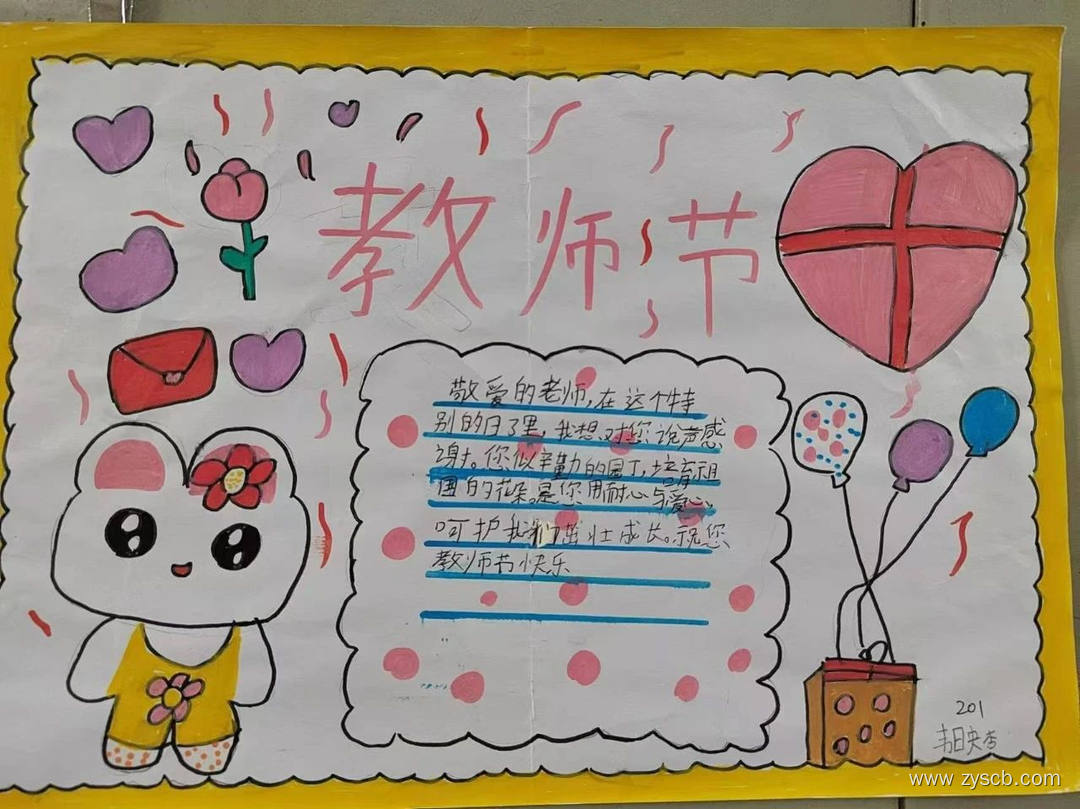 教师节
敬爱的老师,在这个特
别的日子里,我想对您说声感
谢。您似辛勤的园丁,培育祖
国的花朵。是您用耐心与爱心,
呵护我们茁壮成长。祝您
教师节快乐
201
韦日央杏
www.zyscb.com